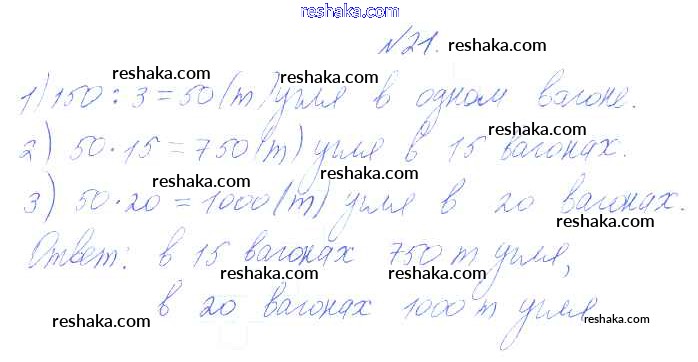 reshaka.com
№21.
reshaka.com reshaka.com
1) 150 : 3 = 50 (т) угля в одном вагоне.
reshaka.com
2) 50 · 15 = 750 (т) угля в 15 вагонах.
reshaka.com reshaka.com
3) 50 · 20 = 1000 (т) угля в 20 вагонах.
reshaka.com
Ответ: в 15 вагонах 750 т угля,
reshaka.com reshaka.com
в 20 вагонах 1000 т угля
reshaka.com reshaka.com